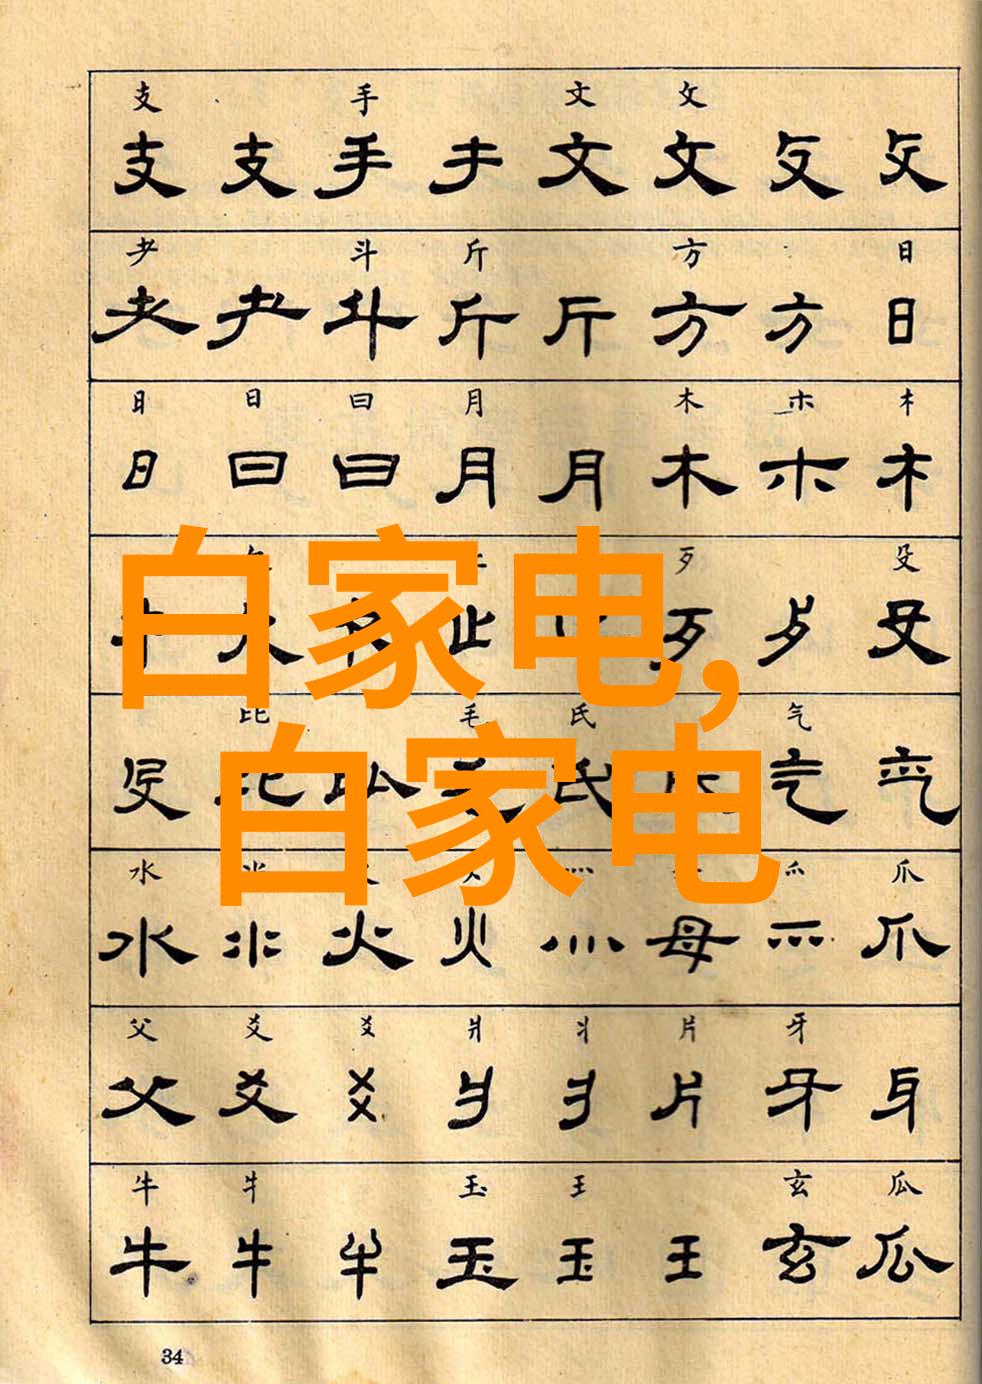 支 手 文 攵
支 支 手 手 文 攵 攵 攵
耂 斗 斤 方 日
耂 耂 斗 斤 斤 方 方 日
日 日 曰 月 木 朩
日 曰 曰 月 月 木 朩 木
歹 殳
止 歹 歹 殳
白家电,
比 毛 氏 气
殳 比 氏 气 气
白家电
水 爪
水 氺 火 火 灬 母 爫 爪
父 爻 爻 爿 丬 片 牙
父 爻 爻 爿 丬 片 牙 牙
牛 牜 玉 王 玄 瓜
牛 牛 牛 玉 玉 王 玄 瓜
34